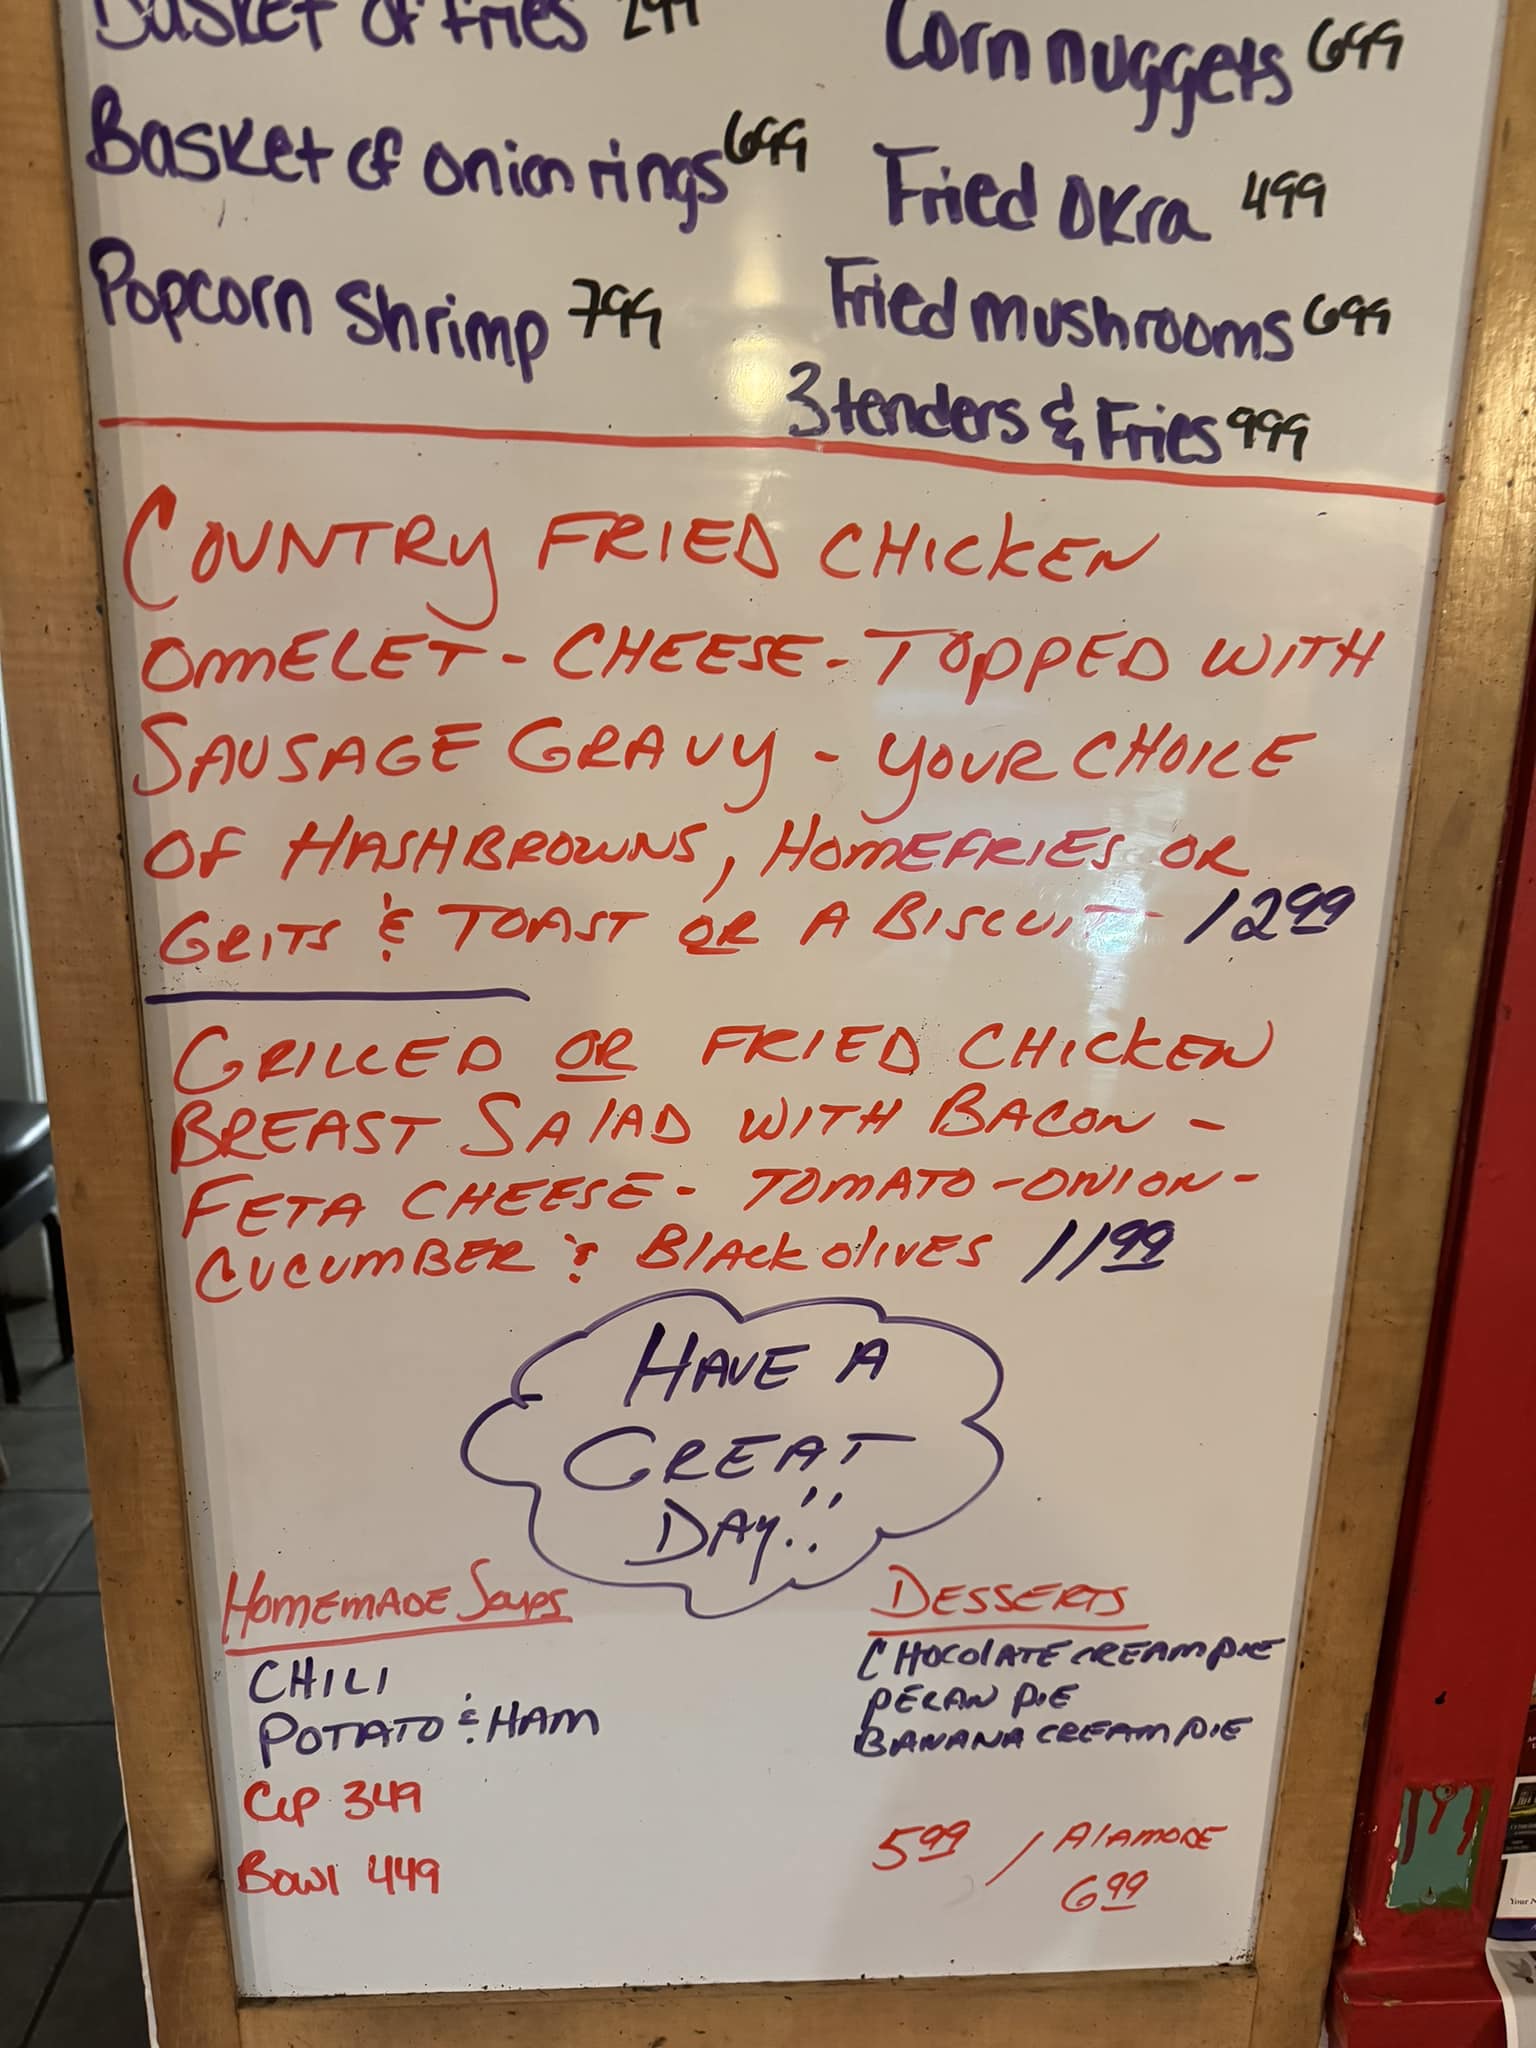 Basket of fries 299
Basket of onion rings 699
Popcorn Shrimp 799
Corn nuggets 699
Fried Okra 499
Fried mushrooms 699
3 tenders & Fries 999
COUNTRY FRIED CHICKEN
OMELET - CHEESE - TOPPED WITH
SAUSAGE GRAVY - YOUR CHOICE
OF HASHBROWNS, HOMEFRIES OR
GRITS & TOAST OR A BISCUIT 12 99
GRILLED OR FRIED CHICKEN
BREAST SALAD WITH BACON -
FETA CHEESE - TOMATO - ONION -
CUCUMBER & BLACK OLIVES 11 99
HAVE A
GREAT
DAY!!
HOMEMADE SOUPS
CHILI
POTATO & HAM
CUP 349
BOWL 449
DESSERTS
CHOCOLATE CREAM PIE
PECAN PIE
BANANA CREAM PIE
5 99 / ALAMODE
6 99